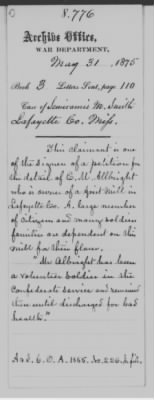 8.776
Archive Office,
WAR DEPARTMENT,
May 31 1875
Book 3 Letter Sent, page 110
Case of Semiramis M. Smith
Lafayette Co. Miss.
This claimant is one
of the signers of a petition for
the detail of C. M. Allbright
who is owner of a Grist Mill in
Lafayette Co. A large number
of citizens and many soldiers
families are dependent on this
mill for their flour.
"Mr Albright has been
a volunteer soldier in the
Confederate service and remained
then until discharged for bad
health."
A & I. G. O. A. 1865. No. 226.